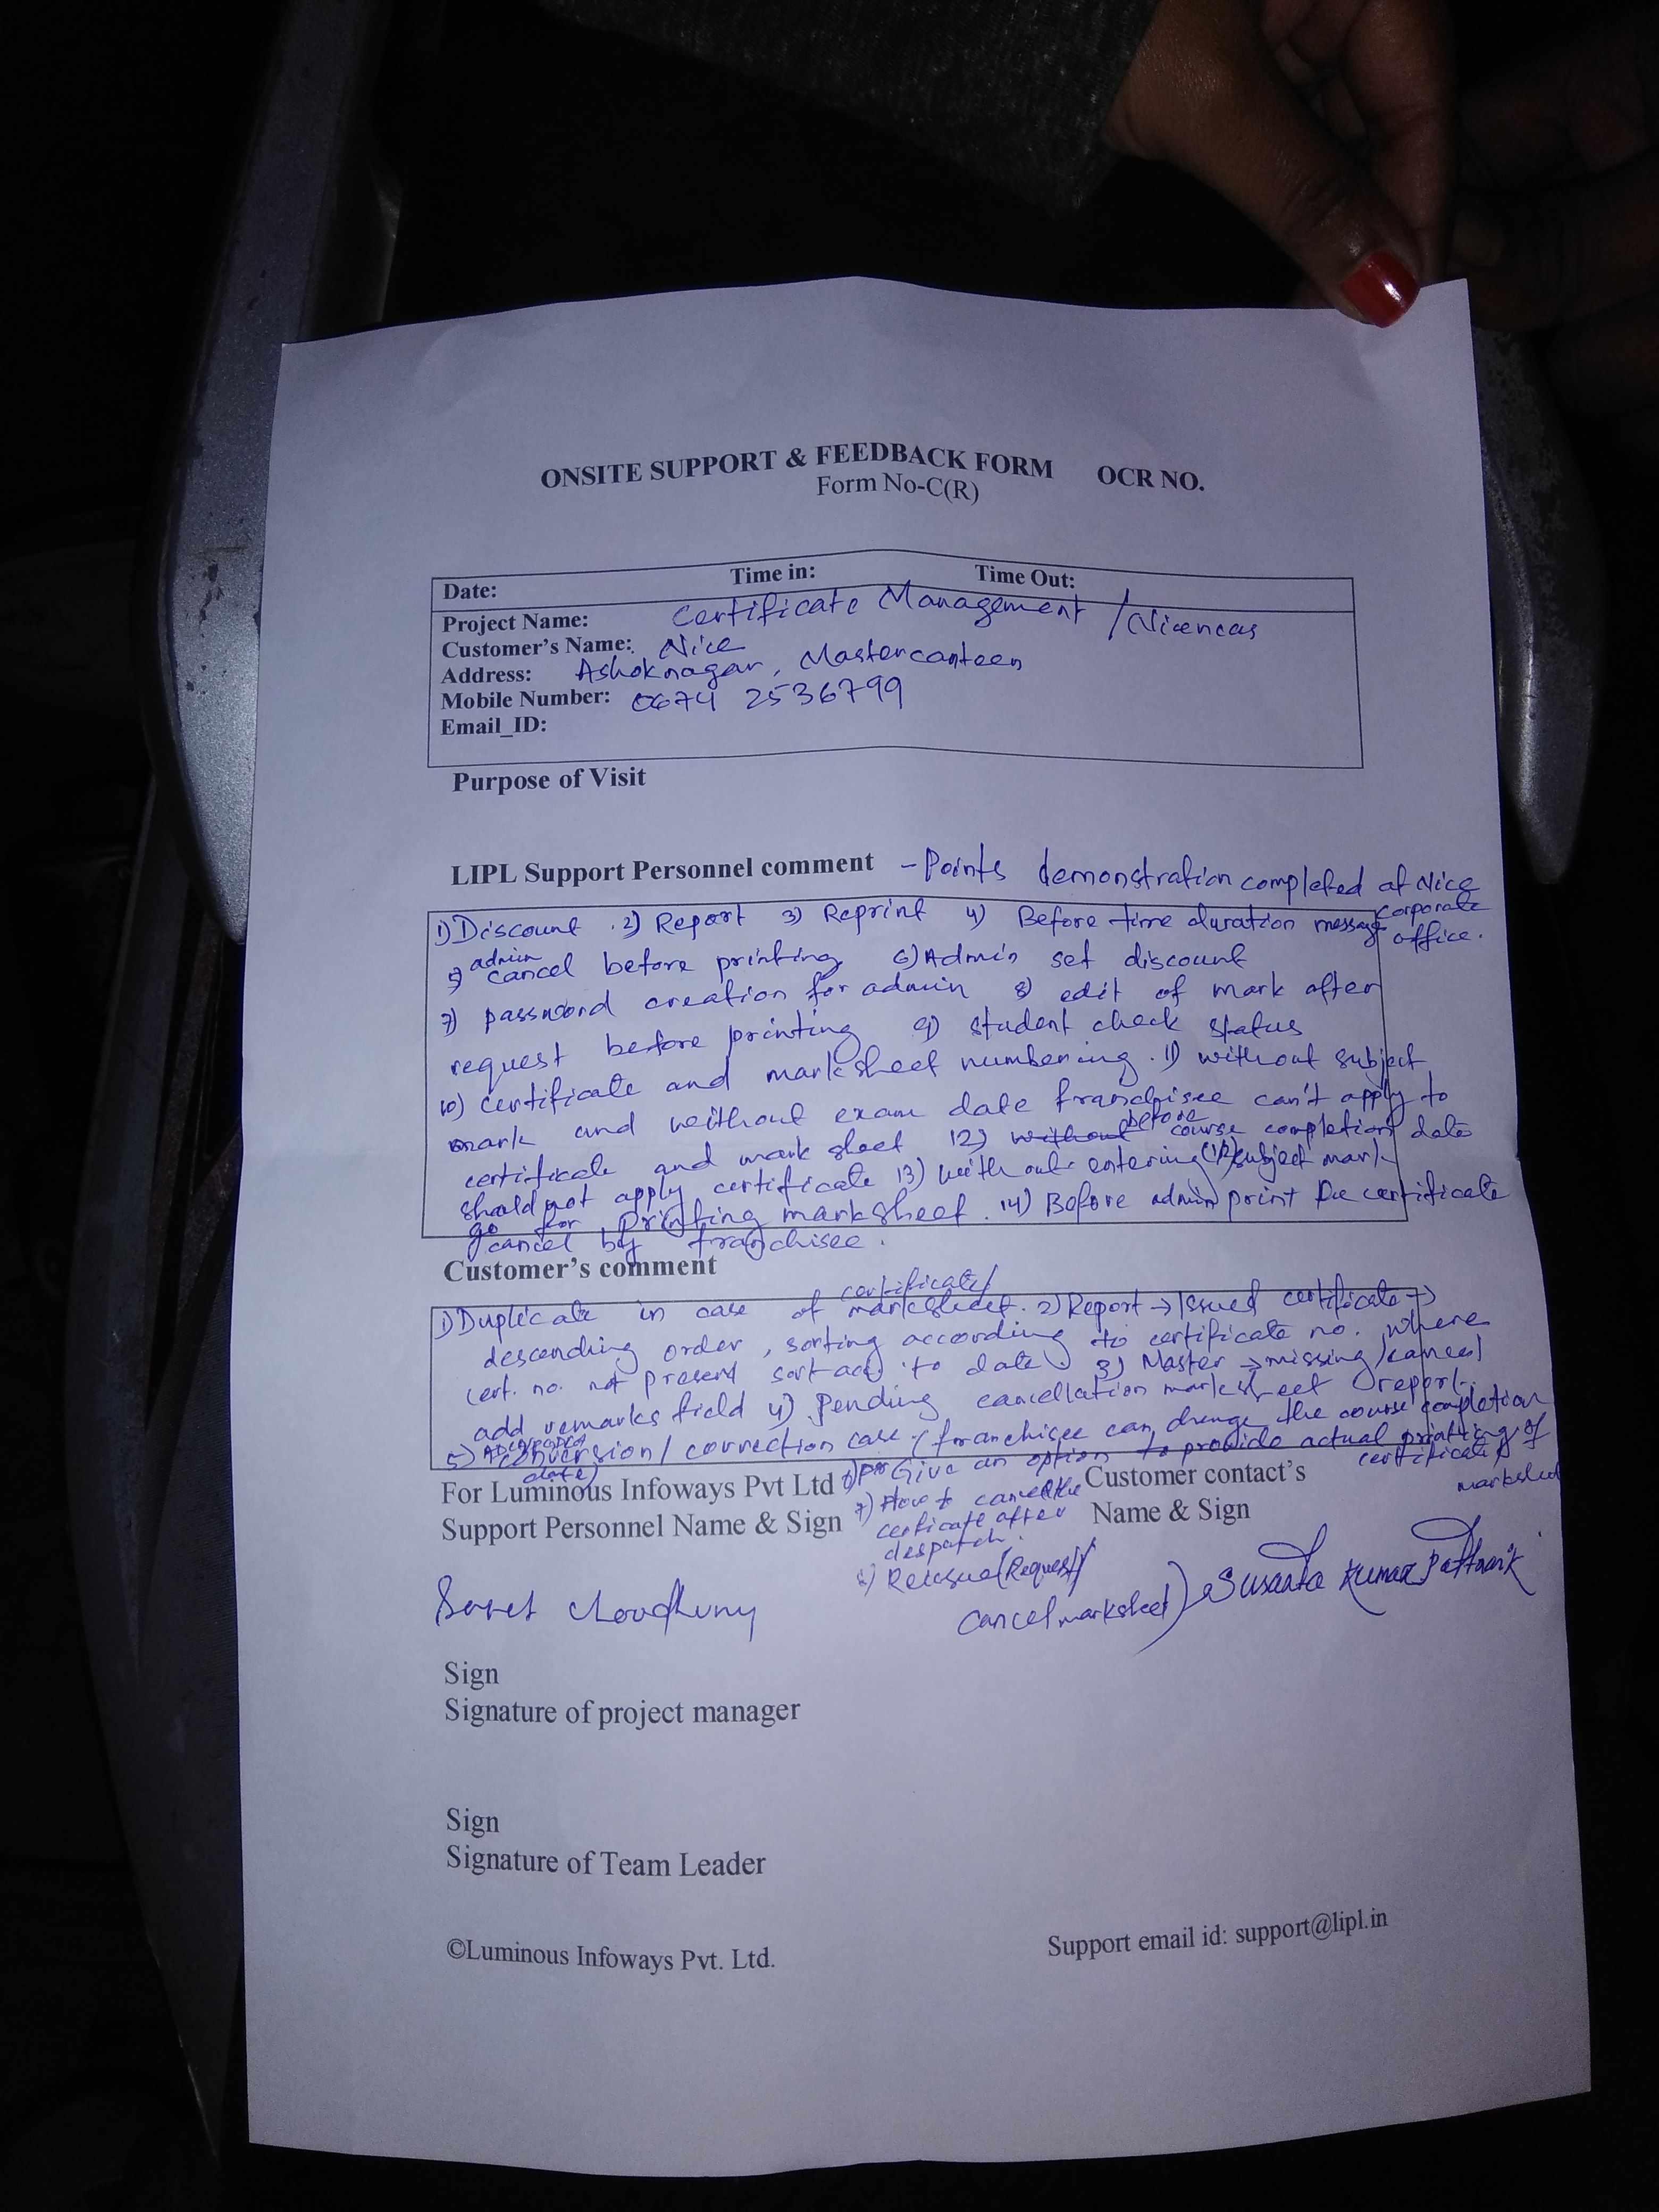 ONSITE SUPPORT & FEEDBACK FORM OCR NO.
Form No-C(R)
Date: Time in: Time Out:
Project Name: Certificate Management /Nicencas
Customer's Name: Nice
Address: Ashoknagar, Mastercanteen
Mobile Number: 0674 2536799
Email_ID:
Purpose of Visit
LIPL Support Personnel comment - Points demonstration completed at Nice
corporate office.
1) Discount 2) Report 3) Reprint 4) Before time duration message
5) admin cancel before printing 6) Admin set discount
7) password creation for admin 8) edit of mark after
request before printing 9) student check status
10) certificate and marksheet numbering. 11) without subject
mark and without exam date franchisee can't apply to
certificate and mark sheet 12) without before course completion date
should not apply certificate 13) without entering subject mark
go for printing marksheet. 14) Before admin print the certificate
cancel by franchisee.
Customer's comment
1) Duplicate in case of certificate/ marksheet. 2) Report → Issued certificate →
descending order, sorting according to certificate no. where
cert. no. not present sort acc. to date. 3) Master → missing/cancel
add remarks field 4) Pending cancellation marksheet report.
5) conversion/ correction case (franchisee can change the course completion
date)
6) Give an option to provide actual printing of
certificate/
marksheet
For Luminous Infoways Pvt Ltd Customer contact's
7) How to cancel the
certificate after
despatch.
Support Personnel Name & Sign Name & Sign
8) Reissue (Request/
Cancel marksheet)
Choudhury Susanta Kumar Pattnaik
Sign
Signature of project manager
Sign
Signature of Team Leader
©Luminous Infoways Pvt. Ltd. Support email id: support@lipl.in